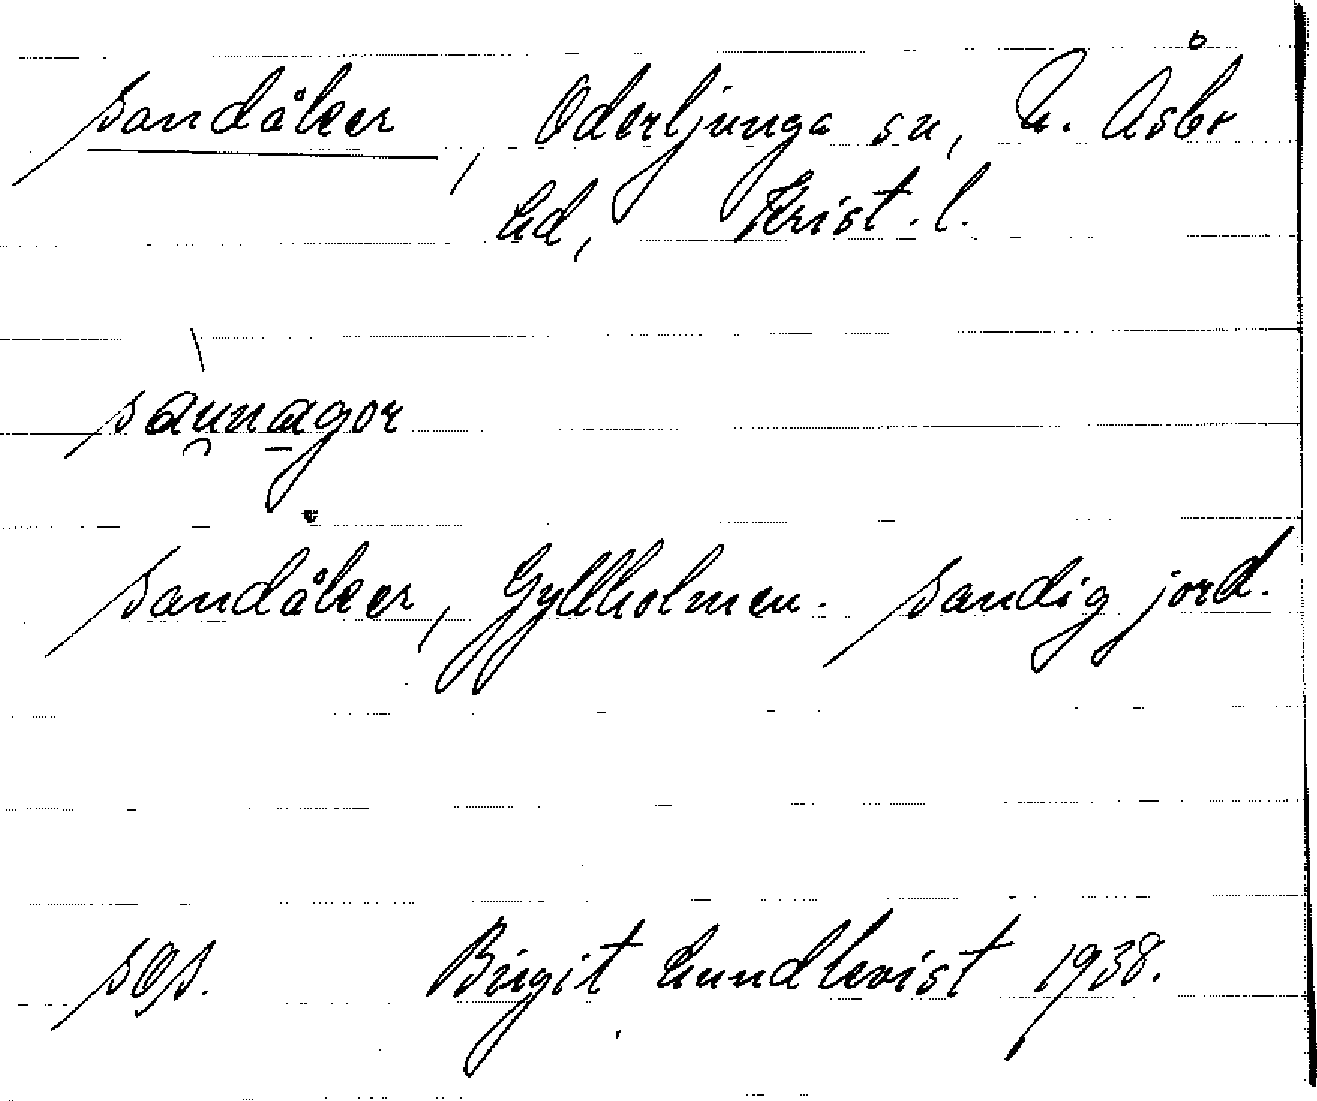 Sandåker, Oderljunga sn, N. Åsbo
hd, Krist. l.
saunagor
Sandåker, Gyllholmen. Sandig jord.
sgs. Birgit Lundkvist 1938.